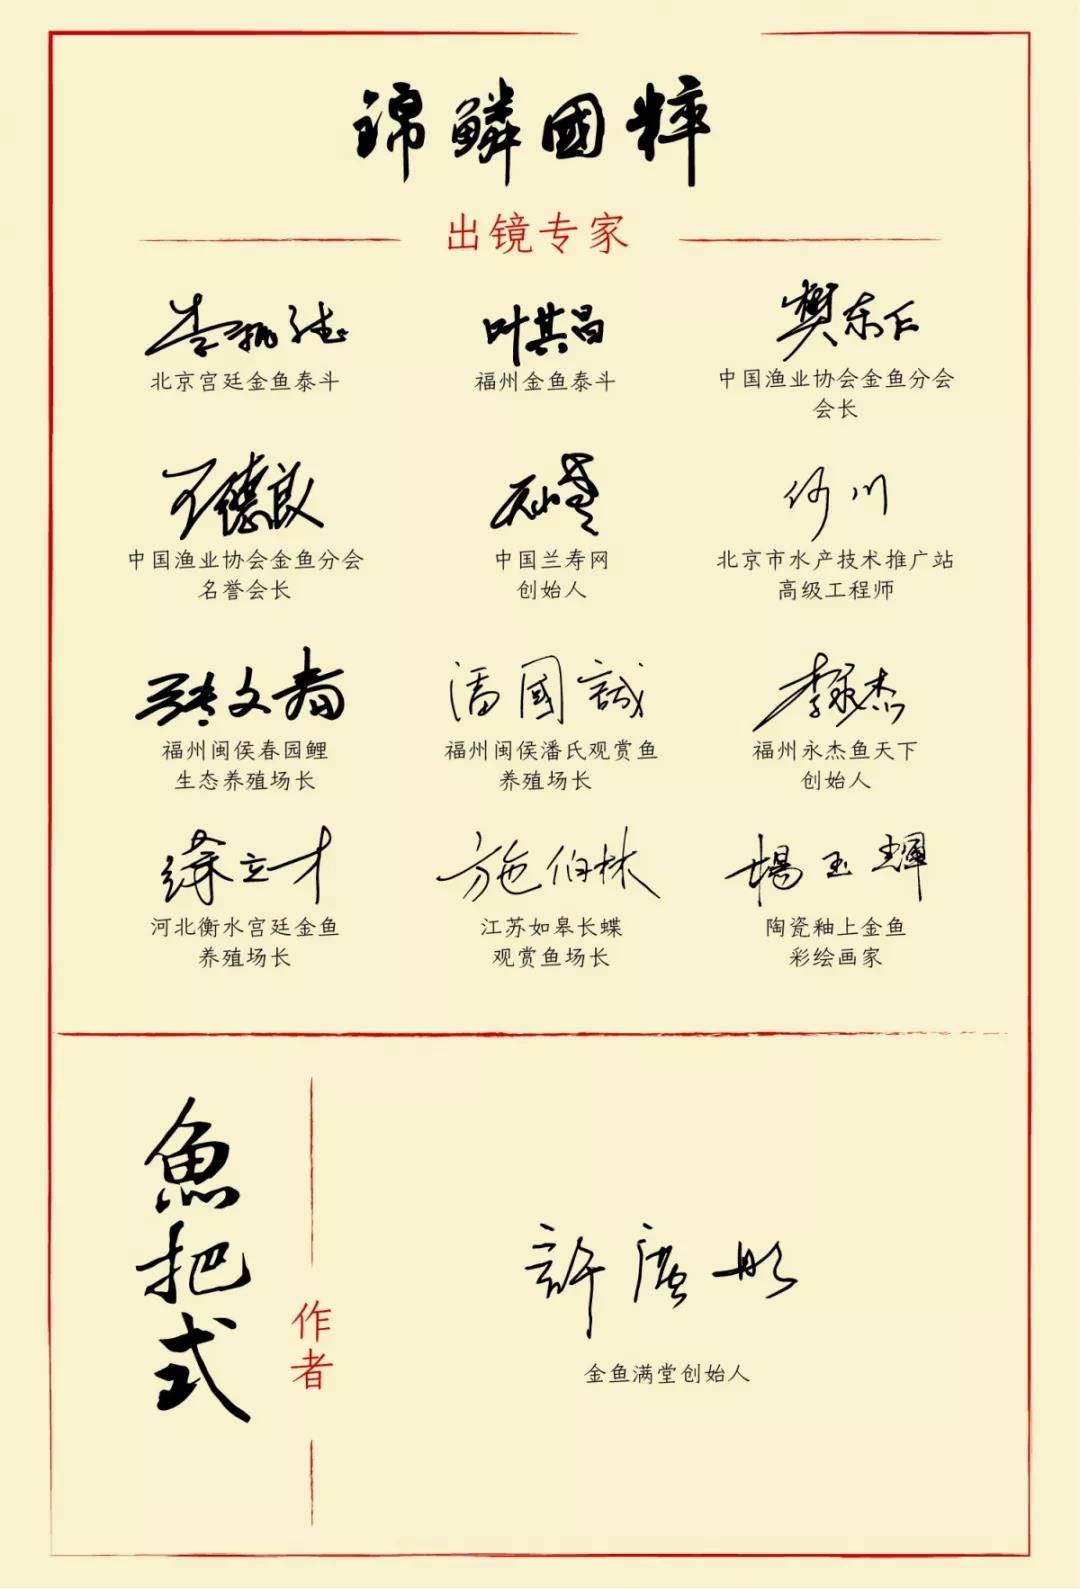 锦鳞國粹
出镜专家
李振德
叶其昌
樊东仁
北京宫廷金鱼泰斗
福州金鱼泰斗
中国渔业协会金鱼分会
会长
王德良
何川
中国渔业协会金鱼分会
名誉会长
中国兰寿网
创始人
北京市水产技术推广站
高级工程师
潘國誠
李永杰
福州闽侯春园鲤
生态养殖场长
福州闽侯潘氏观赏鱼
养殖场长
福州永杰鱼天下
创始人
徐立才
施伯林
楊玉輝
河北衡水宫廷金鱼
养殖场长
江苏如皋长蝶
观赏鱼场长
陶瓷釉上金鱼
彩绘画家
魚把式
作者
許廣彤
金鱼满堂创始人